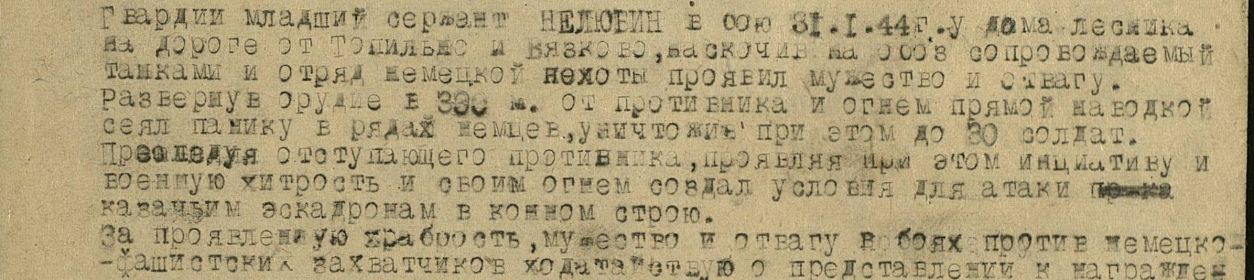 Гвардии младший сержант НЕЛЮБИН в бою 31.1.44г.у дома лесника
на дороге от Топильно и Вязково,наскочив на обоз сопровождаемый
танками и отряд немецкой пехоты проявил мужество и отвагу.
Развернув орудие в 300 м. от противника и огнем прямой наводкой
сеял панику в рядах немцев,уничтожив при этом до 30 солдат.
Преследуя отступающего противника,проявляя при этом инциативу и
военную хитрость и своим огнем создал условия для атаки
казачьим эскадронам в конном строю.
За проявленную храбрость,мужество и отвагу в боях против немецко-
-фашистских захватчиков ходатайствую о представлении к награжден